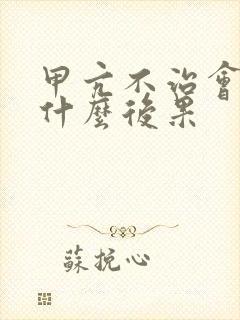 甲亢不治會
什麼後果
蘇挽心